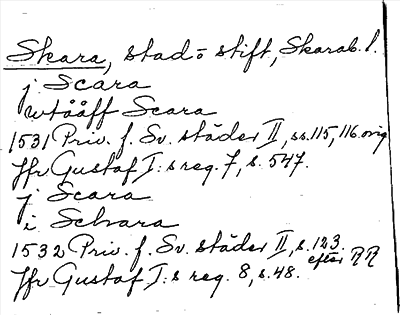 Skara, stad o stift, Skarab. l.
j Scara
wtååff Scara
1531 Priv. f. Sv. städer II, ss. 115, 116. orig
Jfr Gustaf I:s reg. 7, s. 547.
j Scara
i Schara
1532 Priv. f. Sv. städer II, s. 123. efter RR
Jfr Gustaf I:s reg. 8, s. 48.